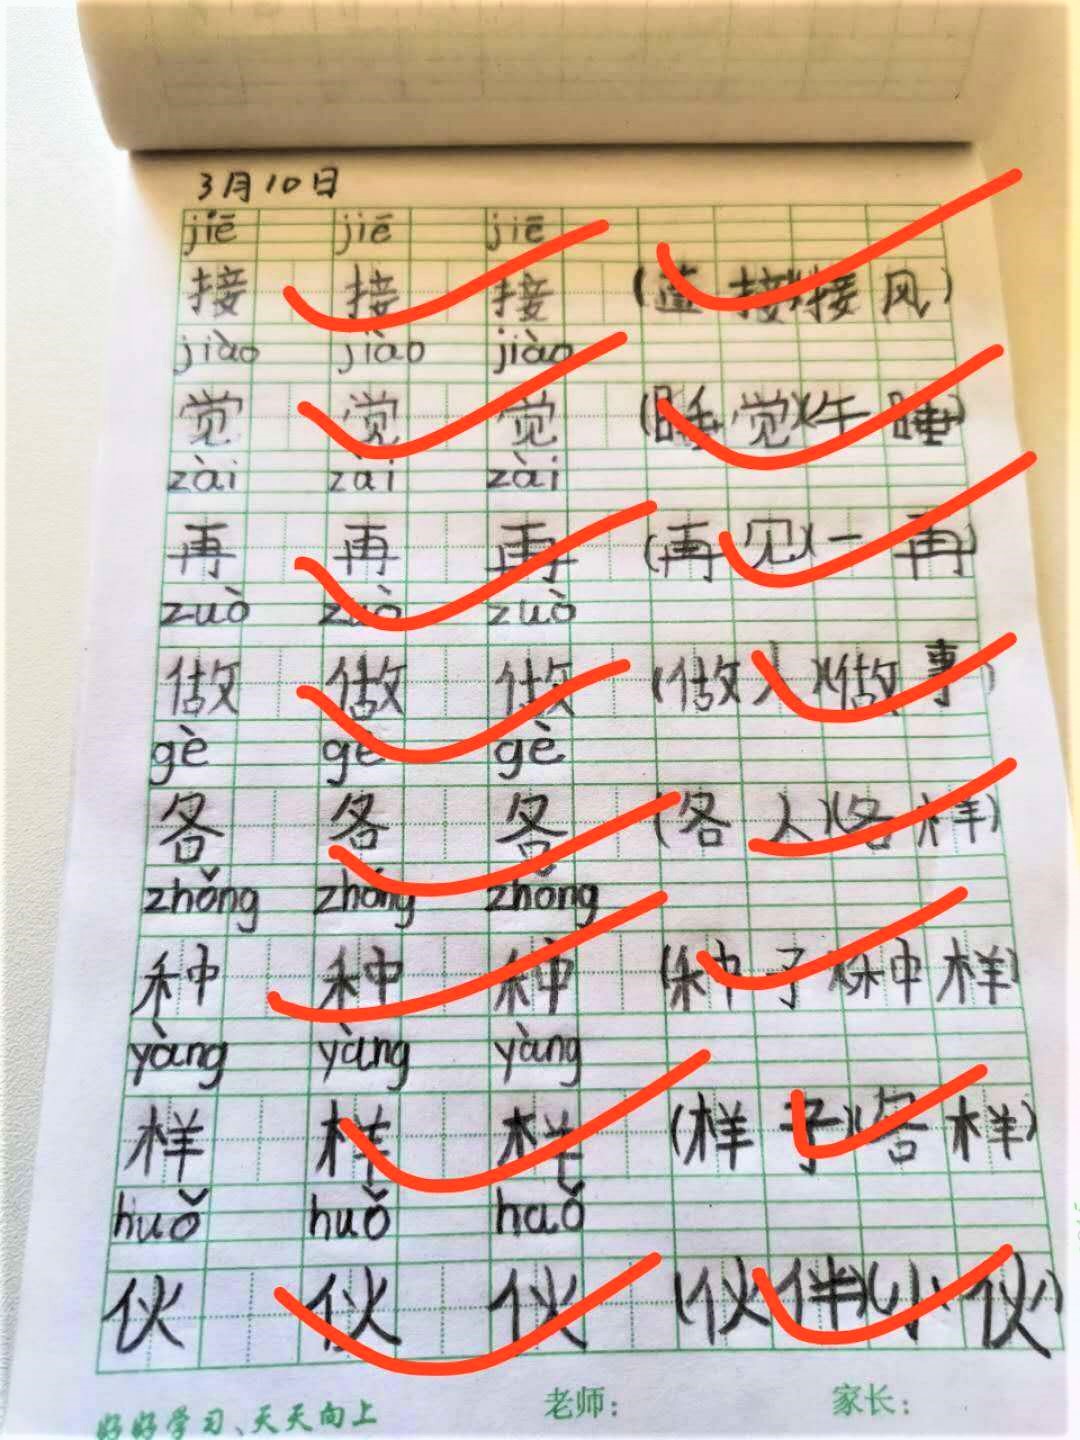 3月10日
jiē jiē jiē
接 接 接 (直接)(接风)
jiào jiào jiào
觉 觉 觉 (睡觉)(午睡)
zài zài zài
再 再 再 (再见)(一再)
zuò zuò zuò
做 做 做 (做人)(做事)
gè gè gè
各 各 各 (各人)(各样)
zhǒng zhǒng zhǒng
种 种 种 (种子)(种样)
yàng yàng yàng
样 样 样 (样子)(各样)
huǒ huǒ haǒ
伙 伙 伙 (伙伴)(小伙)
好好学习、天天向上 老师： 家长：